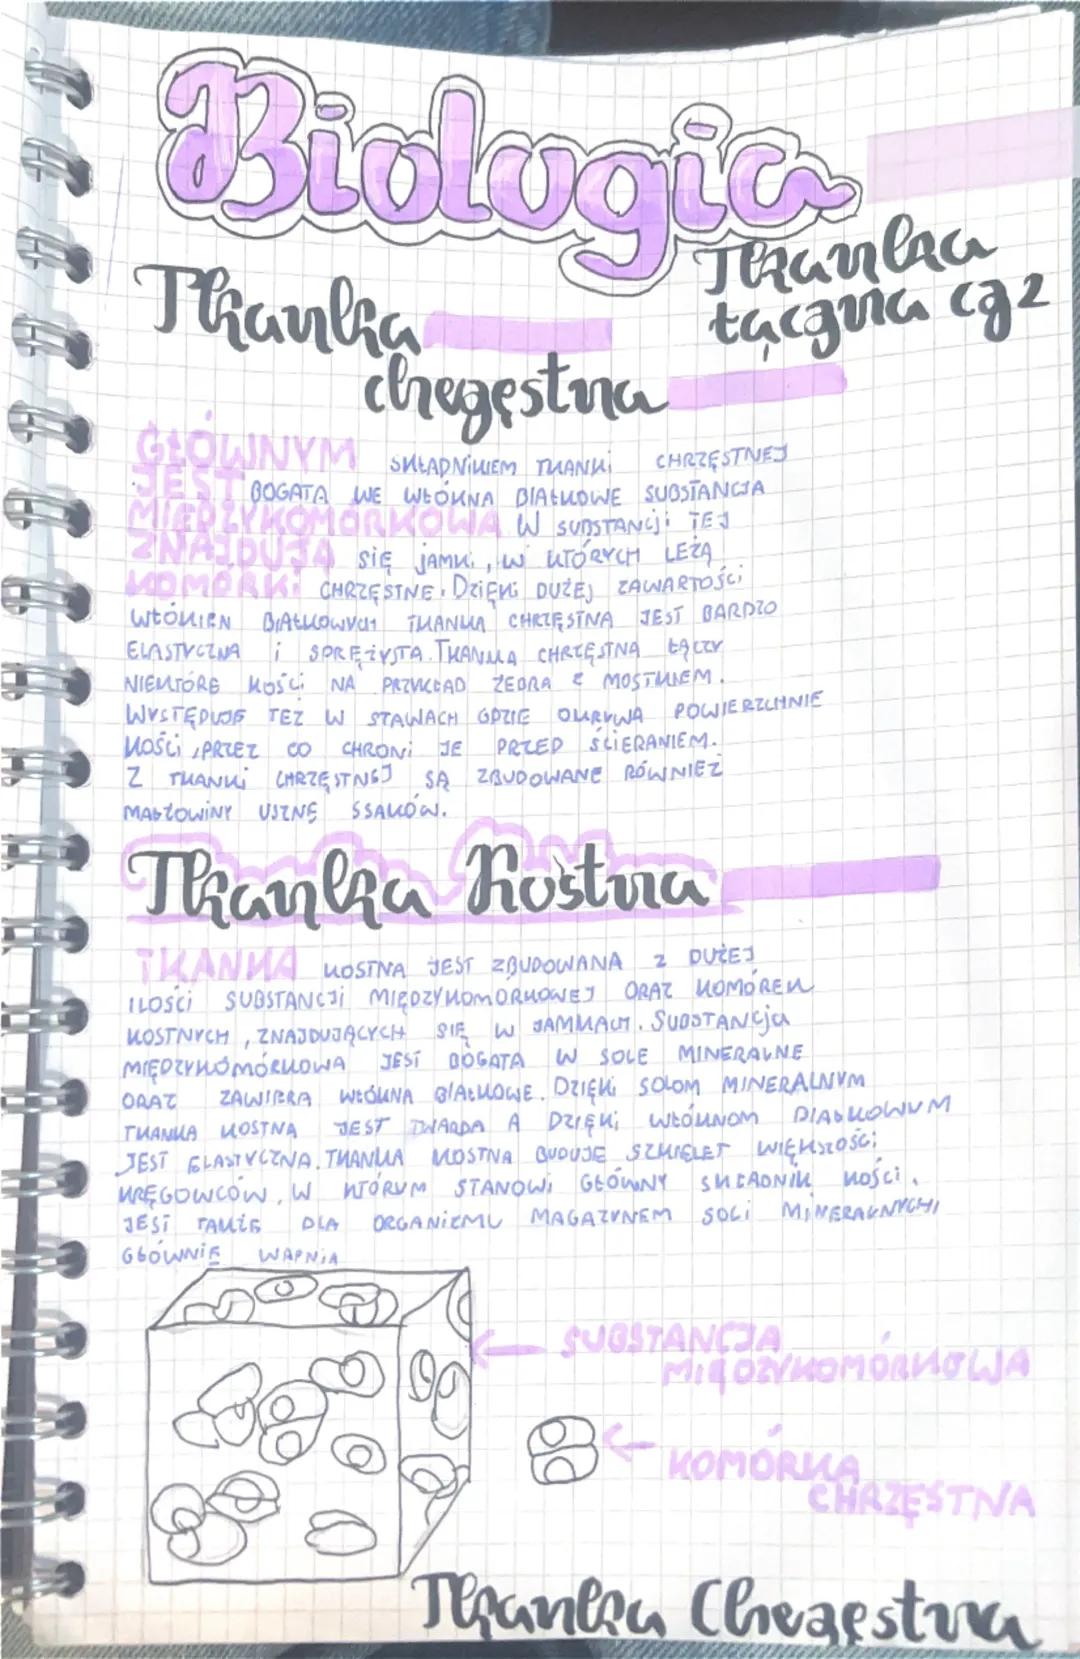 Biologia
Tkanka
łączna cz2
Tkanka
chrzęstna
GŁÓWNYM SKŁADNIKIEM TKANKI CHRZĘSTNEJ
JEST BOGATA WE WŁÓKNA BIAŁKOWE SUBSTANCJA
MIĘDZYKOMÓRKOWA. W SUBSTANCJI TEJ
ZNAJDUJĄ SIĘ JAMKI, W KTÓRYCH LEŻĄ
KOMÓRKI CHRZĘSTNE. DZIĘKI DUŻEJ ZAWARTOŚCI
WŁÓKIEN BIAŁKOWYCH TKANKA CHRZĘSTNA JEST BARDZO
ELASTYCZNA I SPRĘŻYSTA. TKANKA CHRZĘSTNA ŁĄCZY
NIEKTÓRE KOŚCI NA PRZYKŁAD ŻEBRA Z MOSTKIEM.
WYSTĘPUJE TEŻ W STAWACH GDZIE OKRYWA POWIERZCHNIE
KOŚCI, PRZEZ CO CHRONI JE PRZED ŚCIERANIEM.
Z TKANKI CHRZĘSTNEJ SĄ ZBUDOWANE RÓWNIEŻ
MAŁŻOWINY USZNE SSAKÓW.
Tkanka Kostna
TKANKA KOSTNA JEST ZBUDOWANA Z DUŻEJ
ILOŚCI SUBSTANCJI MIĘDZYKOMÓRKOWEJ ORAZ KOMÓREK
KOSTNYCH, ZNAJDUJĄCYCH SIĘ W JAMKACH. SUBSTANCJA
MIĘDZYKOMÓRKOWA JEST BOGATA W SOLE MINERALNE
ORAZ ZAWIERA WŁÓKNA BIAŁKOWE. DZIĘKI SOLOM MINERALNYM
TKANKA KOSTNA JEST TWARDA A DZIĘKI WŁÓKNOM BIAŁKOWYM
JEST ELASTYCZNA. TKANKA KOSTNA BUDUJE SZKIELET WIĘKSZOŚCI
KRĘGOWCÓW, W KTÓRYM STANOWI GŁÓWNY SKŁADNIK KOŚCI.
JEST TAKŻE DLA ORGANIZMU MAGAZYNEM SOLI MINERALNYCH,
GŁÓWNIE WAPNIA
SUBSTANCJA
MIĘDZYKOMÓRKOWA
KOMÓRKA
CHRZĘSTNA
Tkanka Chrzęstna